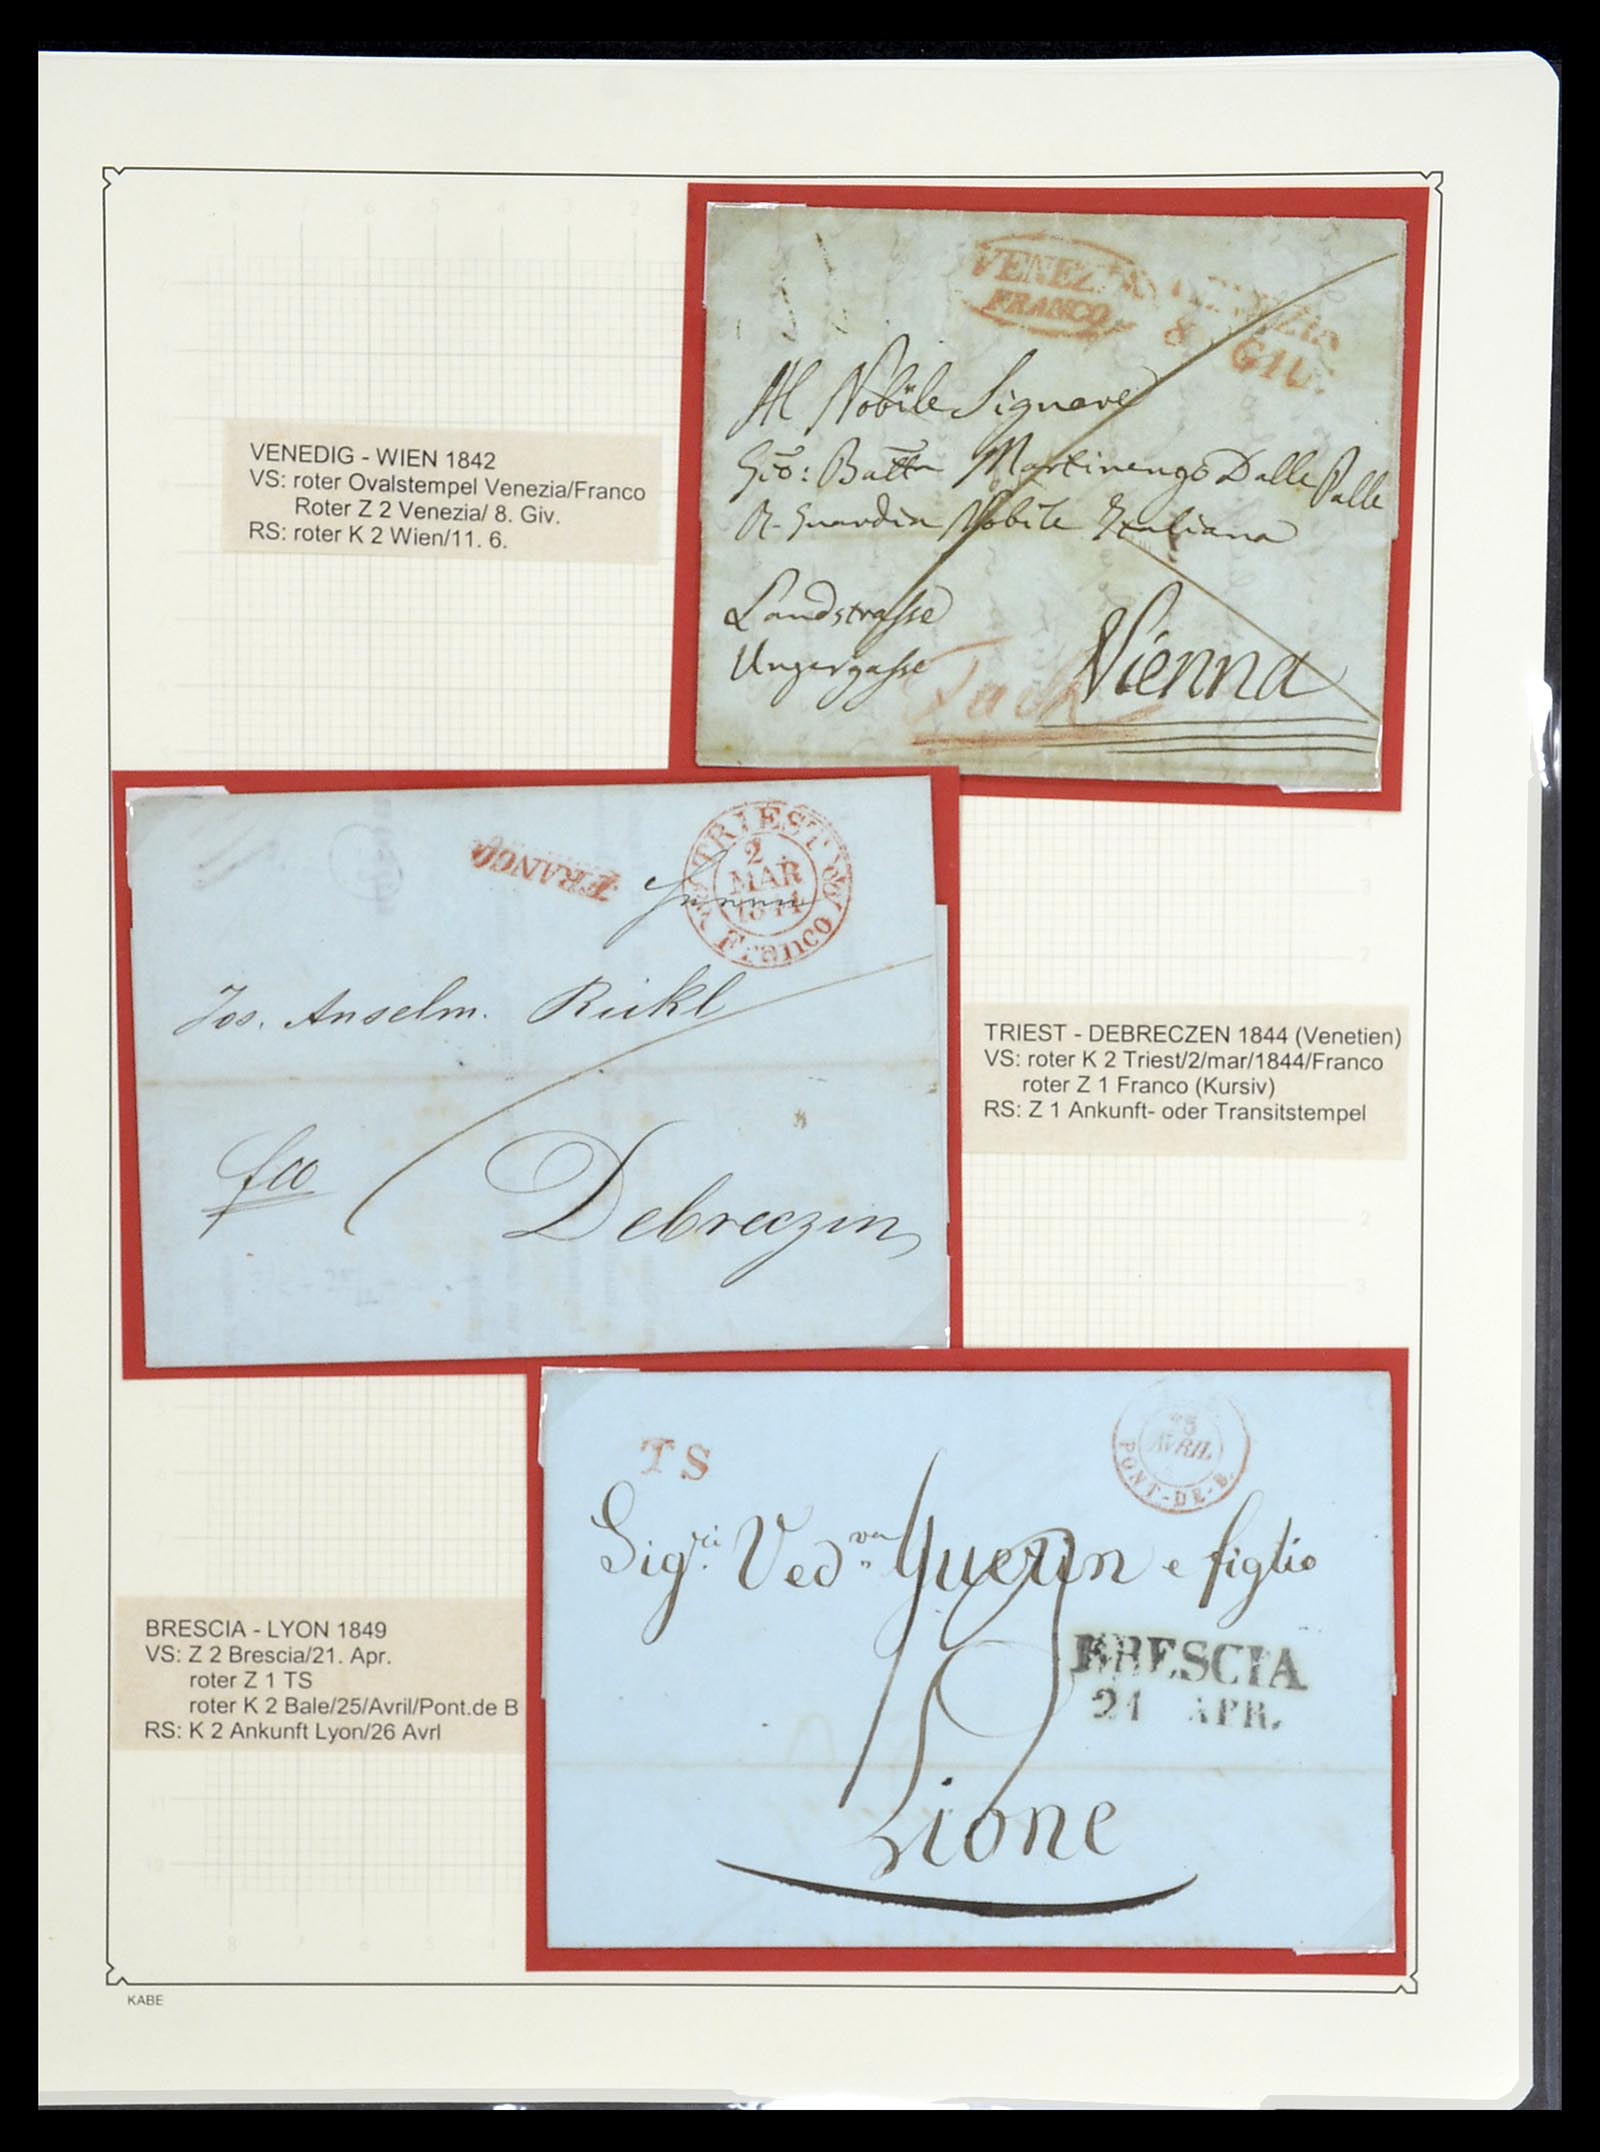 VENEZIA
FRANCO
VENEZIA
8 GIU.
Al Nobile Signore
Gio: Batta Martinengo Dalle Palle
R. Guardia Nobile Italiana
Landstrasse
Ungergasse
Vienna
VENEDIG - WIEN 1842
VS: roter Ovalstempel Venezia/Franco
Roter Z 2 Venezia/ 8. Giv.
RS: roter K 2 Wien/11. 6.
FRANCO
TRIEST
2
MAR
1844
Franco
Jos. Anselm. Rickl
fco
Debreczin
TRIEST - DEBRECZEN 1844 (Venetien)
VS: roter K 2 Triest/2/mar/1844/Franco
roter Z 1 Franco (Kursiv)
RS: Z 1 Ankunft- oder Transitstempel
TS
25
AVRIL
PONT-DE-B.
Sigri Vedva Guerin e figlio
BRESCIA
21 APR.
Lione
BRESCIA - LYON 1849
VS: Z 2 Brescia/21. Apr.
roter Z 1 TS
roter K 2 Bale/25/Avril/Pont.de B
RS: K 2 Ankunft Lyon/26 Avrl
KABE